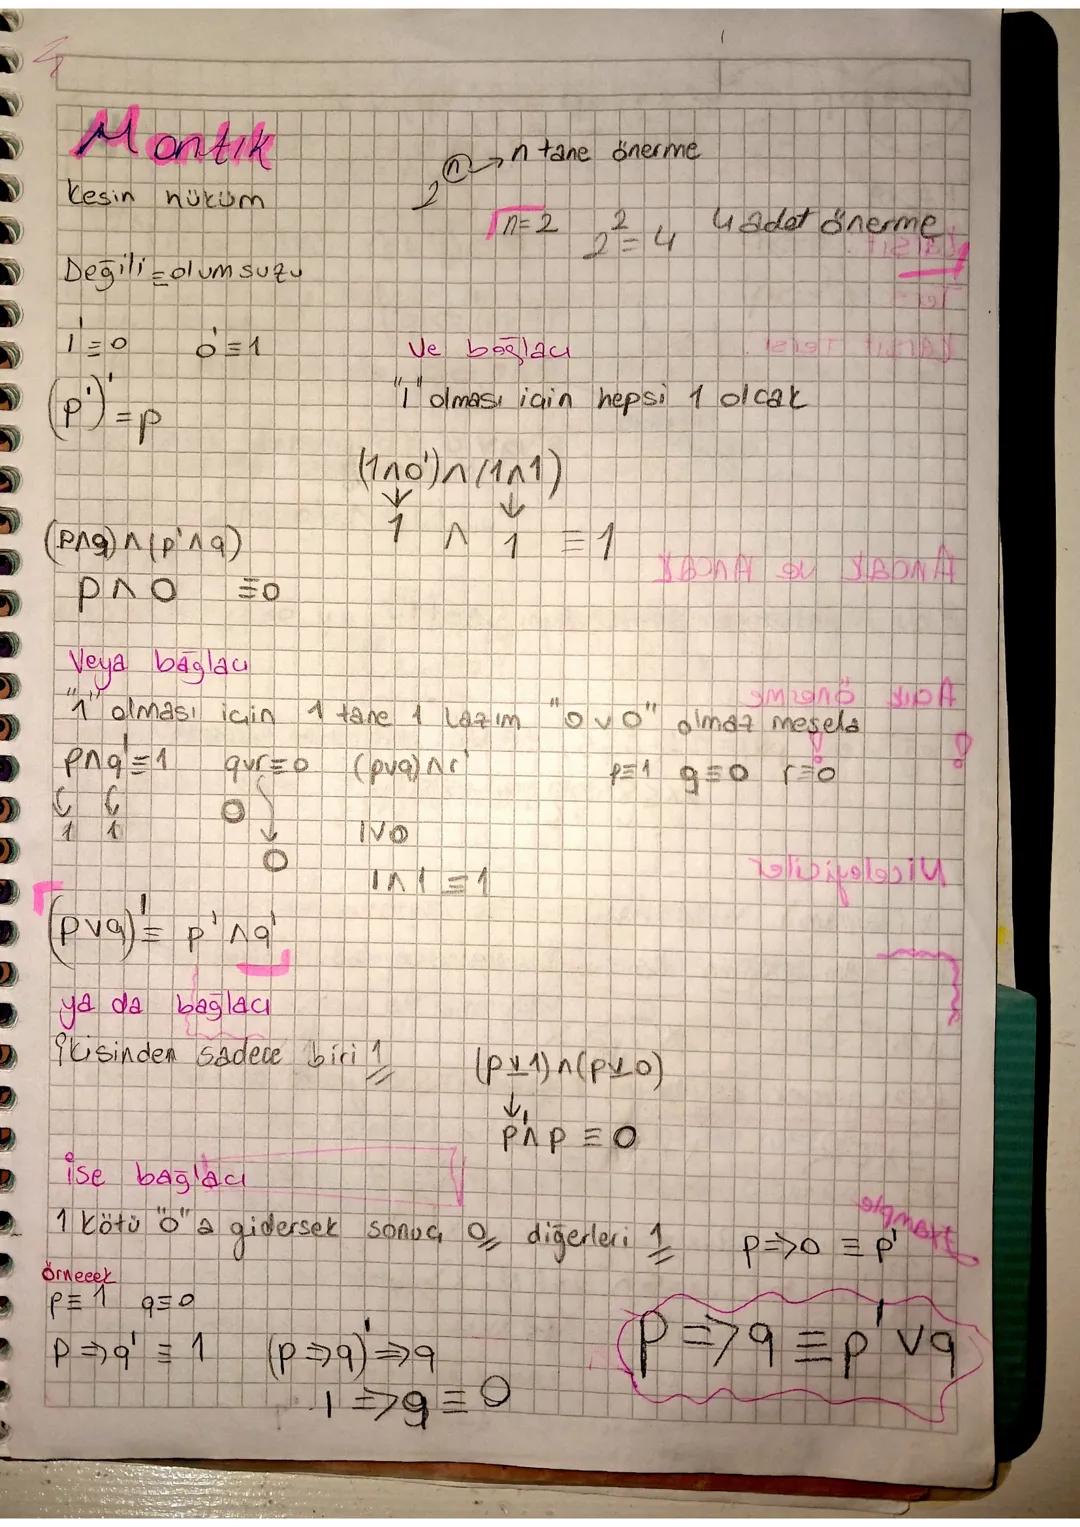 Mantık
2ⁿ → n tane önerme
kesin hüküm
n=2 2²=4 4 adet önerme
Değili = olumsuzu
1'≡0 0'≡1
(p')'=p
Ve bağlacı
"1" olması için hepsi 1 olcak
(1∧0')∧(1∧1)
1 ∧ 1 ≡ 1
(p∧q)∧(p'∧q)
p∧0 ≡0
Veya bağlacı
"1" olması için 1 tane 1 lazım "0∨0" olmaz mesela
p∧q'≡1 q∨r≡0 (p∨q)∧r' p≡1 q≡0 r≡0
1 1 0 0
1∨0
1∧1≡1
(p∨q)'≡ p'∧q'
ya da bağlacı
İkisinden sadece biri 1
(p⊻1)∧(p⊻0)
p'∧p ≡ 0
ise bağlacı
1 kötü "0"a gidersek sonuç 0, diğerleri 1
p⇒0 ≡ p'
örneeek
p≡1 q≡0
p⇒q' ≡ 1 (p⇒q)'⇒q
1⇒q≡0
p⇒q≡p'∨q